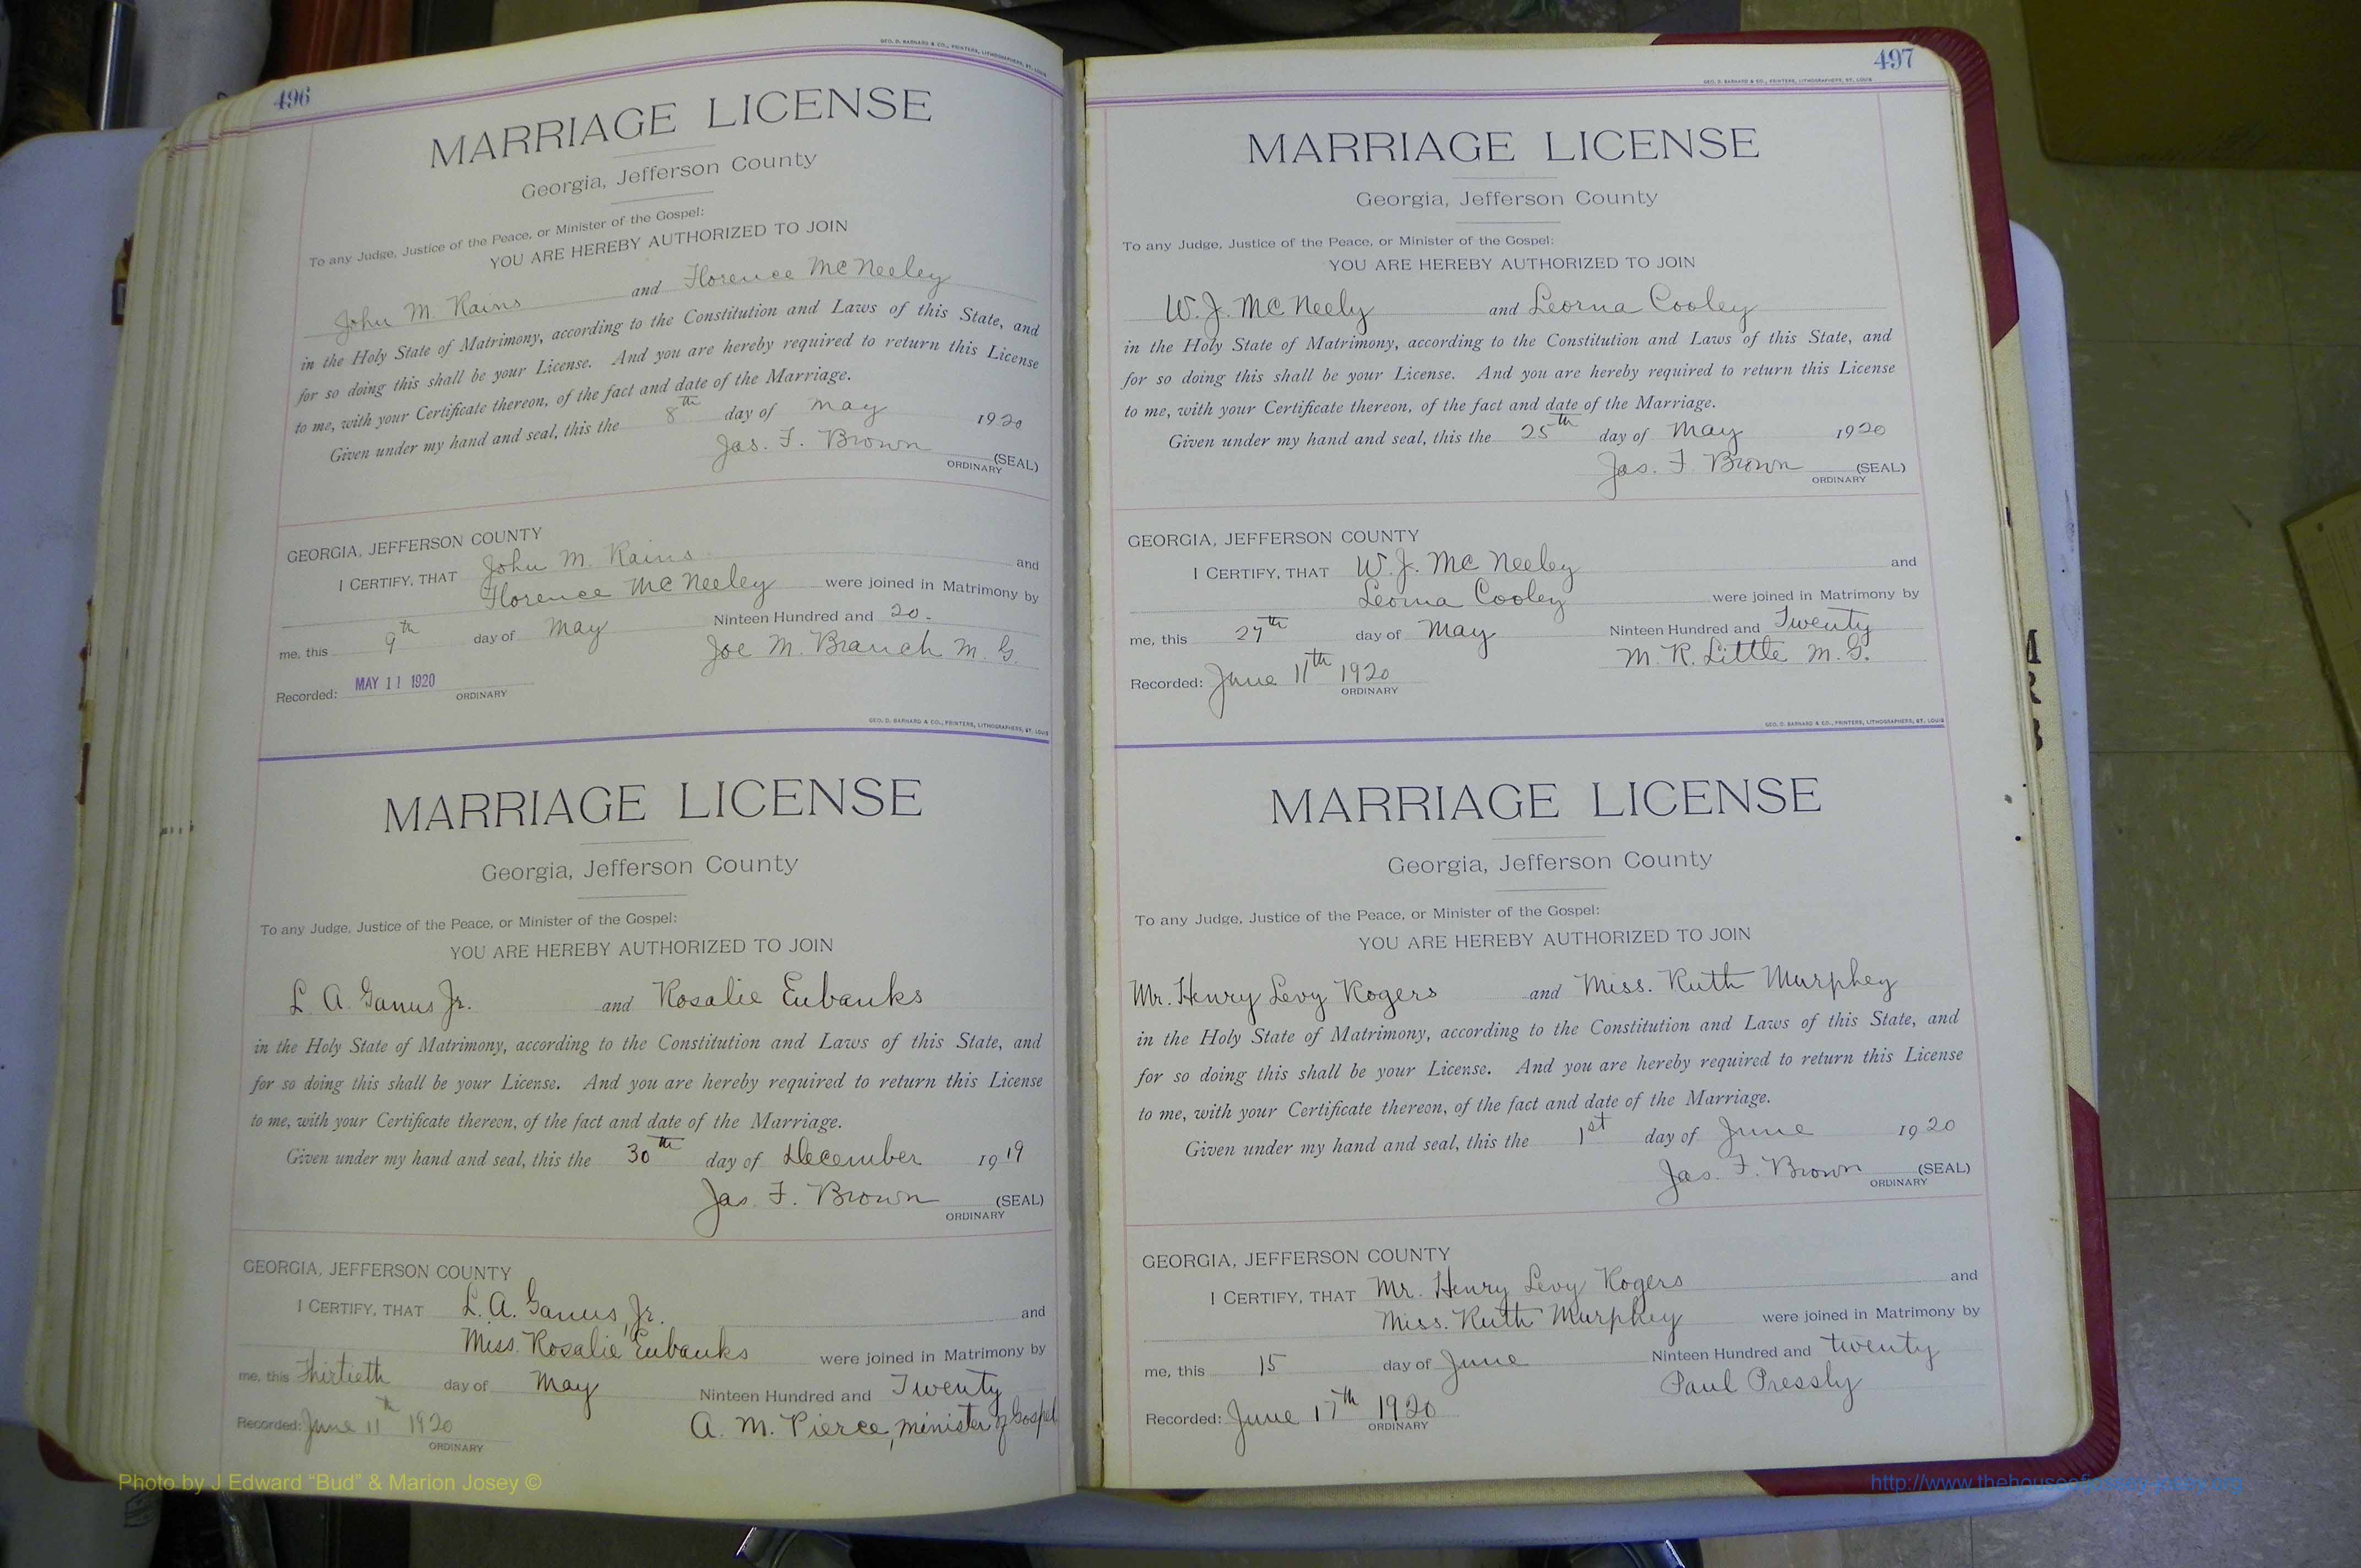 496
GEO. D. BARNARD & CO., PRINTERS, LITHOGRAPHERS, ST. LOUIS
MARRIAGE LICENSE
Georgia, Jefferson County
To any Judge, Justice of the Peace, or Minister of the Gospel:
YOU ARE HEREBY AUTHORIZED TO JOIN
John M. Rains and Florence McNeeley
in the Holy State of Matrimony, according to the Constitution and Laws of this State, and
for so doing this shall be your License. And you are hereby required to return this License
to me, with your Certificate thereon, of the fact and date of the Marriage.
Given under my hand and seal, this the 8th day of May 1920
Jas. F. Brown (SEAL)
ORDINARY
GEORGIA, JEFFERSON COUNTY
I CERTIFY, THAT John M. Rains and
Florence McNeeley were joined in Matrimony by
me, this 9th day of May Ninteen Hundred and 20.
Joe M. Branch M. G.
Recorded: MAY 11 1920
ORDINARY
GEO. D. BARNARD & CO., PRINTERS, LITHOGRAPHERS, ST. LOUIS
MARRIAGE LICENSE
Georgia, Jefferson County
To any Judge, Justice of the Peace, or Minister of the Gospel:
YOU ARE HEREBY AUTHORIZED TO JOIN
L. A. Ganus Jr. and Rosalie Eubanks
in the Holy State of Matrimony, according to the Constitution and Laws of this State, and
for so doing this shall be your License. And you are hereby required to return this License
to me, with your Certificate thereon, of the fact and date of the Marriage.
Given under my hand and seal, this the 30th day of December 1919
Jas. F. Brown (SEAL)
ORDINARY
GEORGIA, JEFFERSON COUNTY
I CERTIFY, THAT L. A. Ganus, Jr. and
Miss Rosalie Eubanks were joined in Matrimony by
me, this Thirtieth day of May Ninteen Hundred and Twenty
Recorded: June 11th 1920 A. M. Pierce, minister of Gospel
ORDINARY
497
GEO. D. BARNARD & CO., PRINTERS, LITHOGRAPHERS, ST. LOUIS
MARRIAGE LICENSE
Georgia, Jefferson County
To any Judge, Justice of the Peace, or Minister of the Gospel:
YOU ARE HEREBY AUTHORIZED TO JOIN
W. J. McNeely and Leorna Cooley
in the Holy State of Matrimony, according to the Constitution and Laws of this State, and
for so doing this shall be your License. And you are hereby required to return this License
to me, with your Certificate thereon, of the fact and date of the Marriage.
Given under my hand and seal, this the 25th day of May 1920
Jas. F Brown (SEAL)
ORDINARY
GEORGIA, JEFFERSON COUNTY
I CERTIFY, THAT W. J. McNeeley and
Leorna Cooley were joined in Matrimony by
me, this 27th day of May Ninteen Hundred and Twenty
M. R. Little M. G.
Recorded: June 11th 1920
ORDINARY
GEO. D. BARNARD & CO., PRINTERS, LITHOGRAPHERS, ST. LOUIS
MARRIAGE LICENSE
Georgia, Jefferson County
To any Judge, Justice of the Peace, or Minister of the Gospel:
YOU ARE HEREBY AUTHORIZED TO JOIN
Mr. Henry Levy Rogers and Miss. Ruth Murphey
in the Holy State of Matrimony, according to the Constitution and Laws of this State, and
for so doing this shall be your License. And you are hereby required to return this License
to me, with your Certificate thereon, of the fact and date of the Marriage.
Given under my hand and seal, this the 1st day of June 1920
Jas. F. Brown (SEAL)
ORDINARY
GEORGIA, JEFFERSON COUNTY
I CERTIFY, THAT Mr. Henry Levy Rogers and
Miss. Ruth Murphey were joined in Matrimony by
me, this 15 day of June Ninteen Hundred and twenty
Paul Pressly
Recorded: June 17th 1920
ORDINARY
Photo by J Edward “Bud” & Marion Josey ©